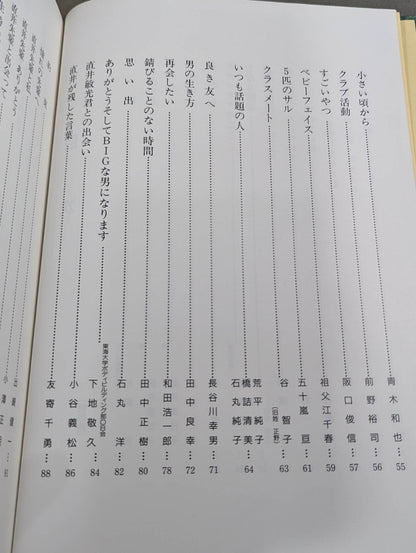 小さい頃から……青木和也…55
クラブ活動……前野裕司…56
すごいやつ……阪口俊信…57
ベビーフェイス……祖父江千春…59
5匹のサル……五十嵐亘…61
クラスメート……谷智子(旧姓 正野)…63
いつも話題の人……荒平純子
橋詰清美…64
石丸純子
良き友へ……長谷川幸男…71
男の生き方……田中良幸…72
再会したい……和田浩一郎…78
錆びることのない時間……田中正樹…80
思い出……石丸洋…82
ありがとうそしてBIGな男になります……東海大学ボディビルディング部OB会 下地敬久…84
直井敏光君との出会い……小谷義松…86
直井が残した言葉……友寄千勇…88